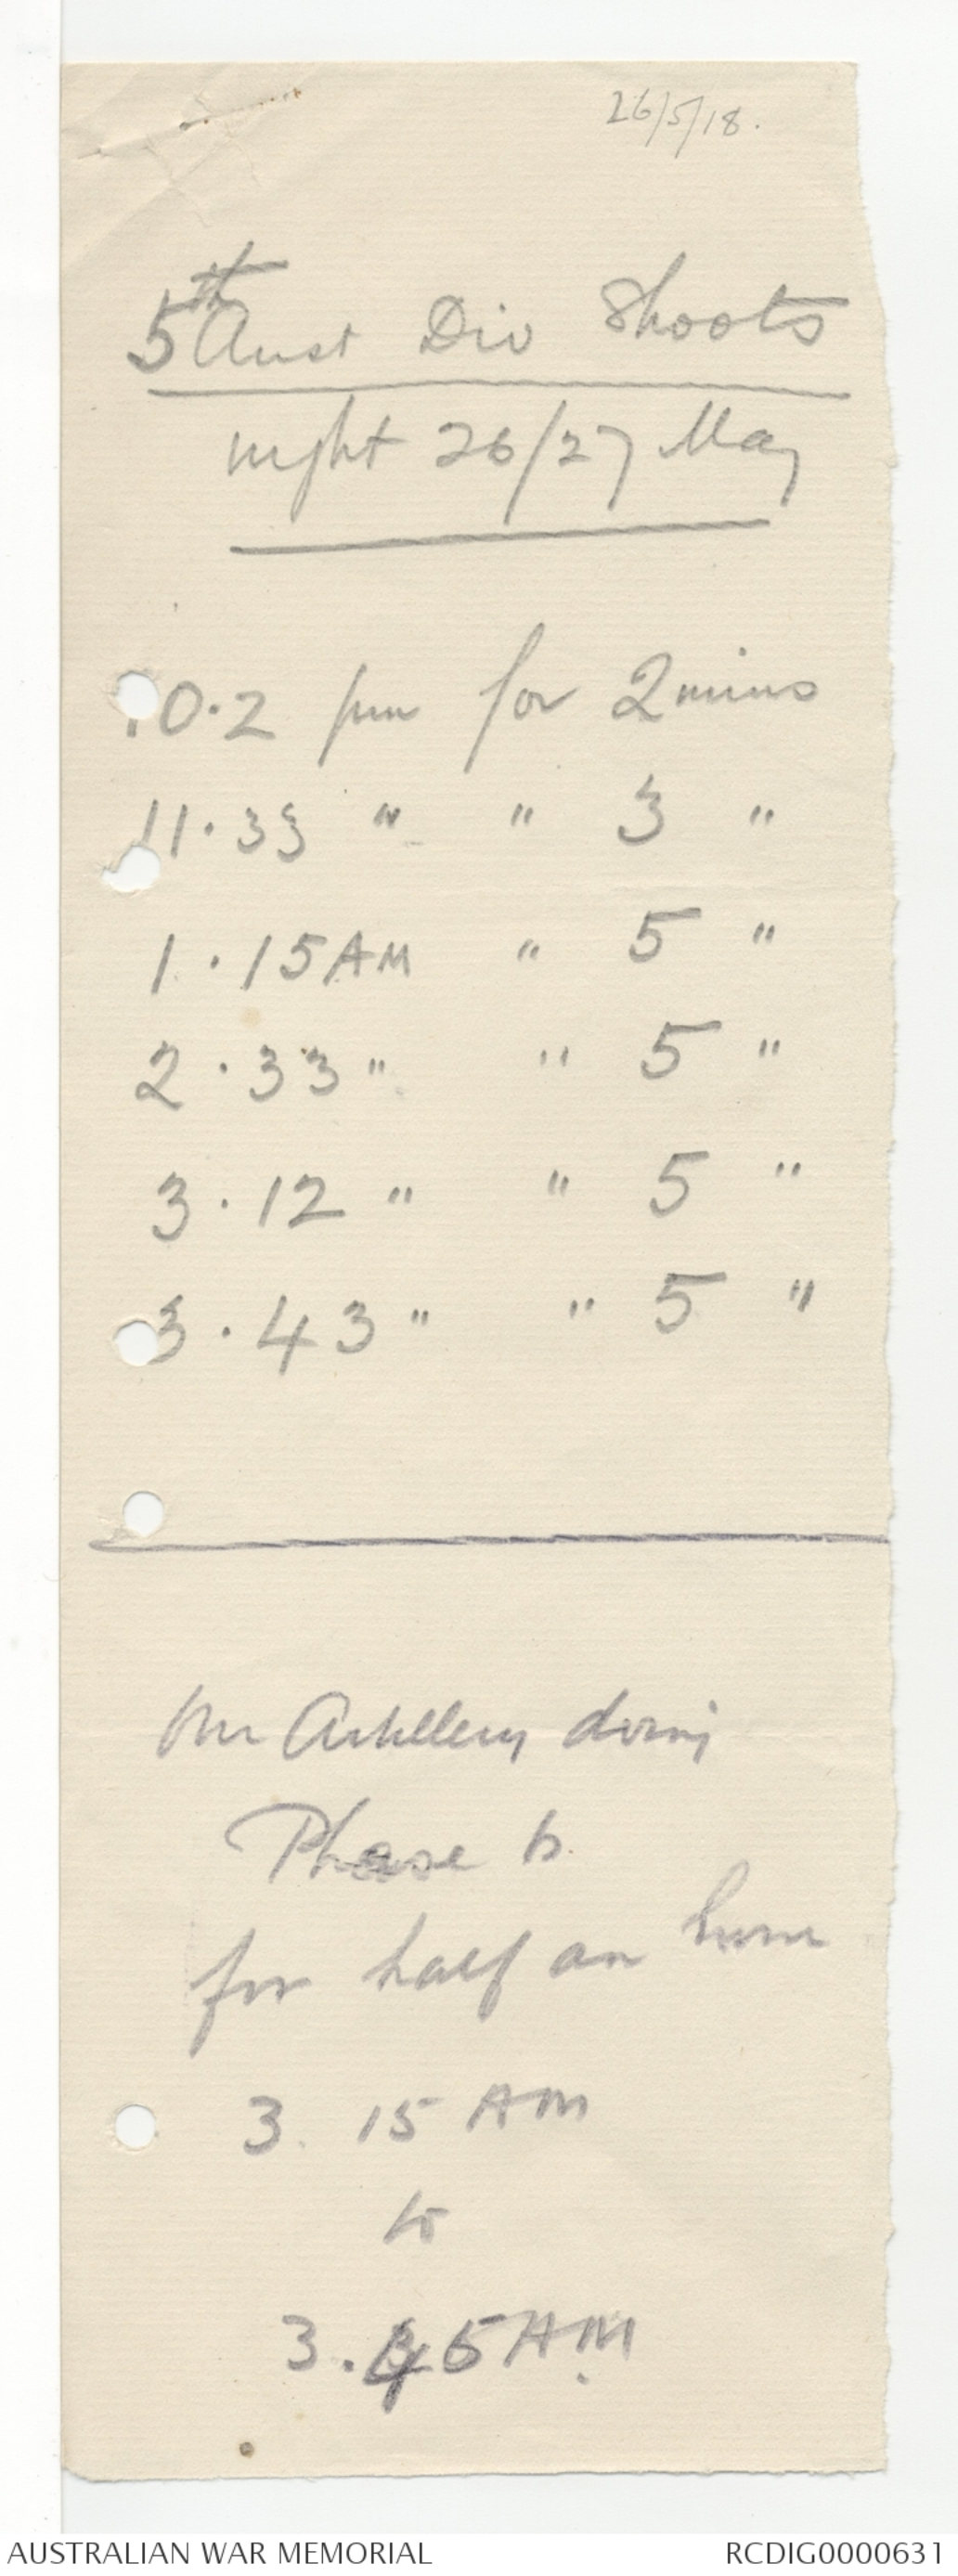 26/5/18.
5th Aust Div Shoots
night 26/27 May
10.2 pm for 2 mins
11.33 " " 3 "
1.15 AM " 5 "
2.33 " " 5 "
3.12 " " 5 "
3.43 " " 5 "
Our Artillery doing
Phase b.
for half an hour
3. 15 AM
to
3.45 AM
AUSTRALIAN WAR MEMORIAL
RCDIG0000631